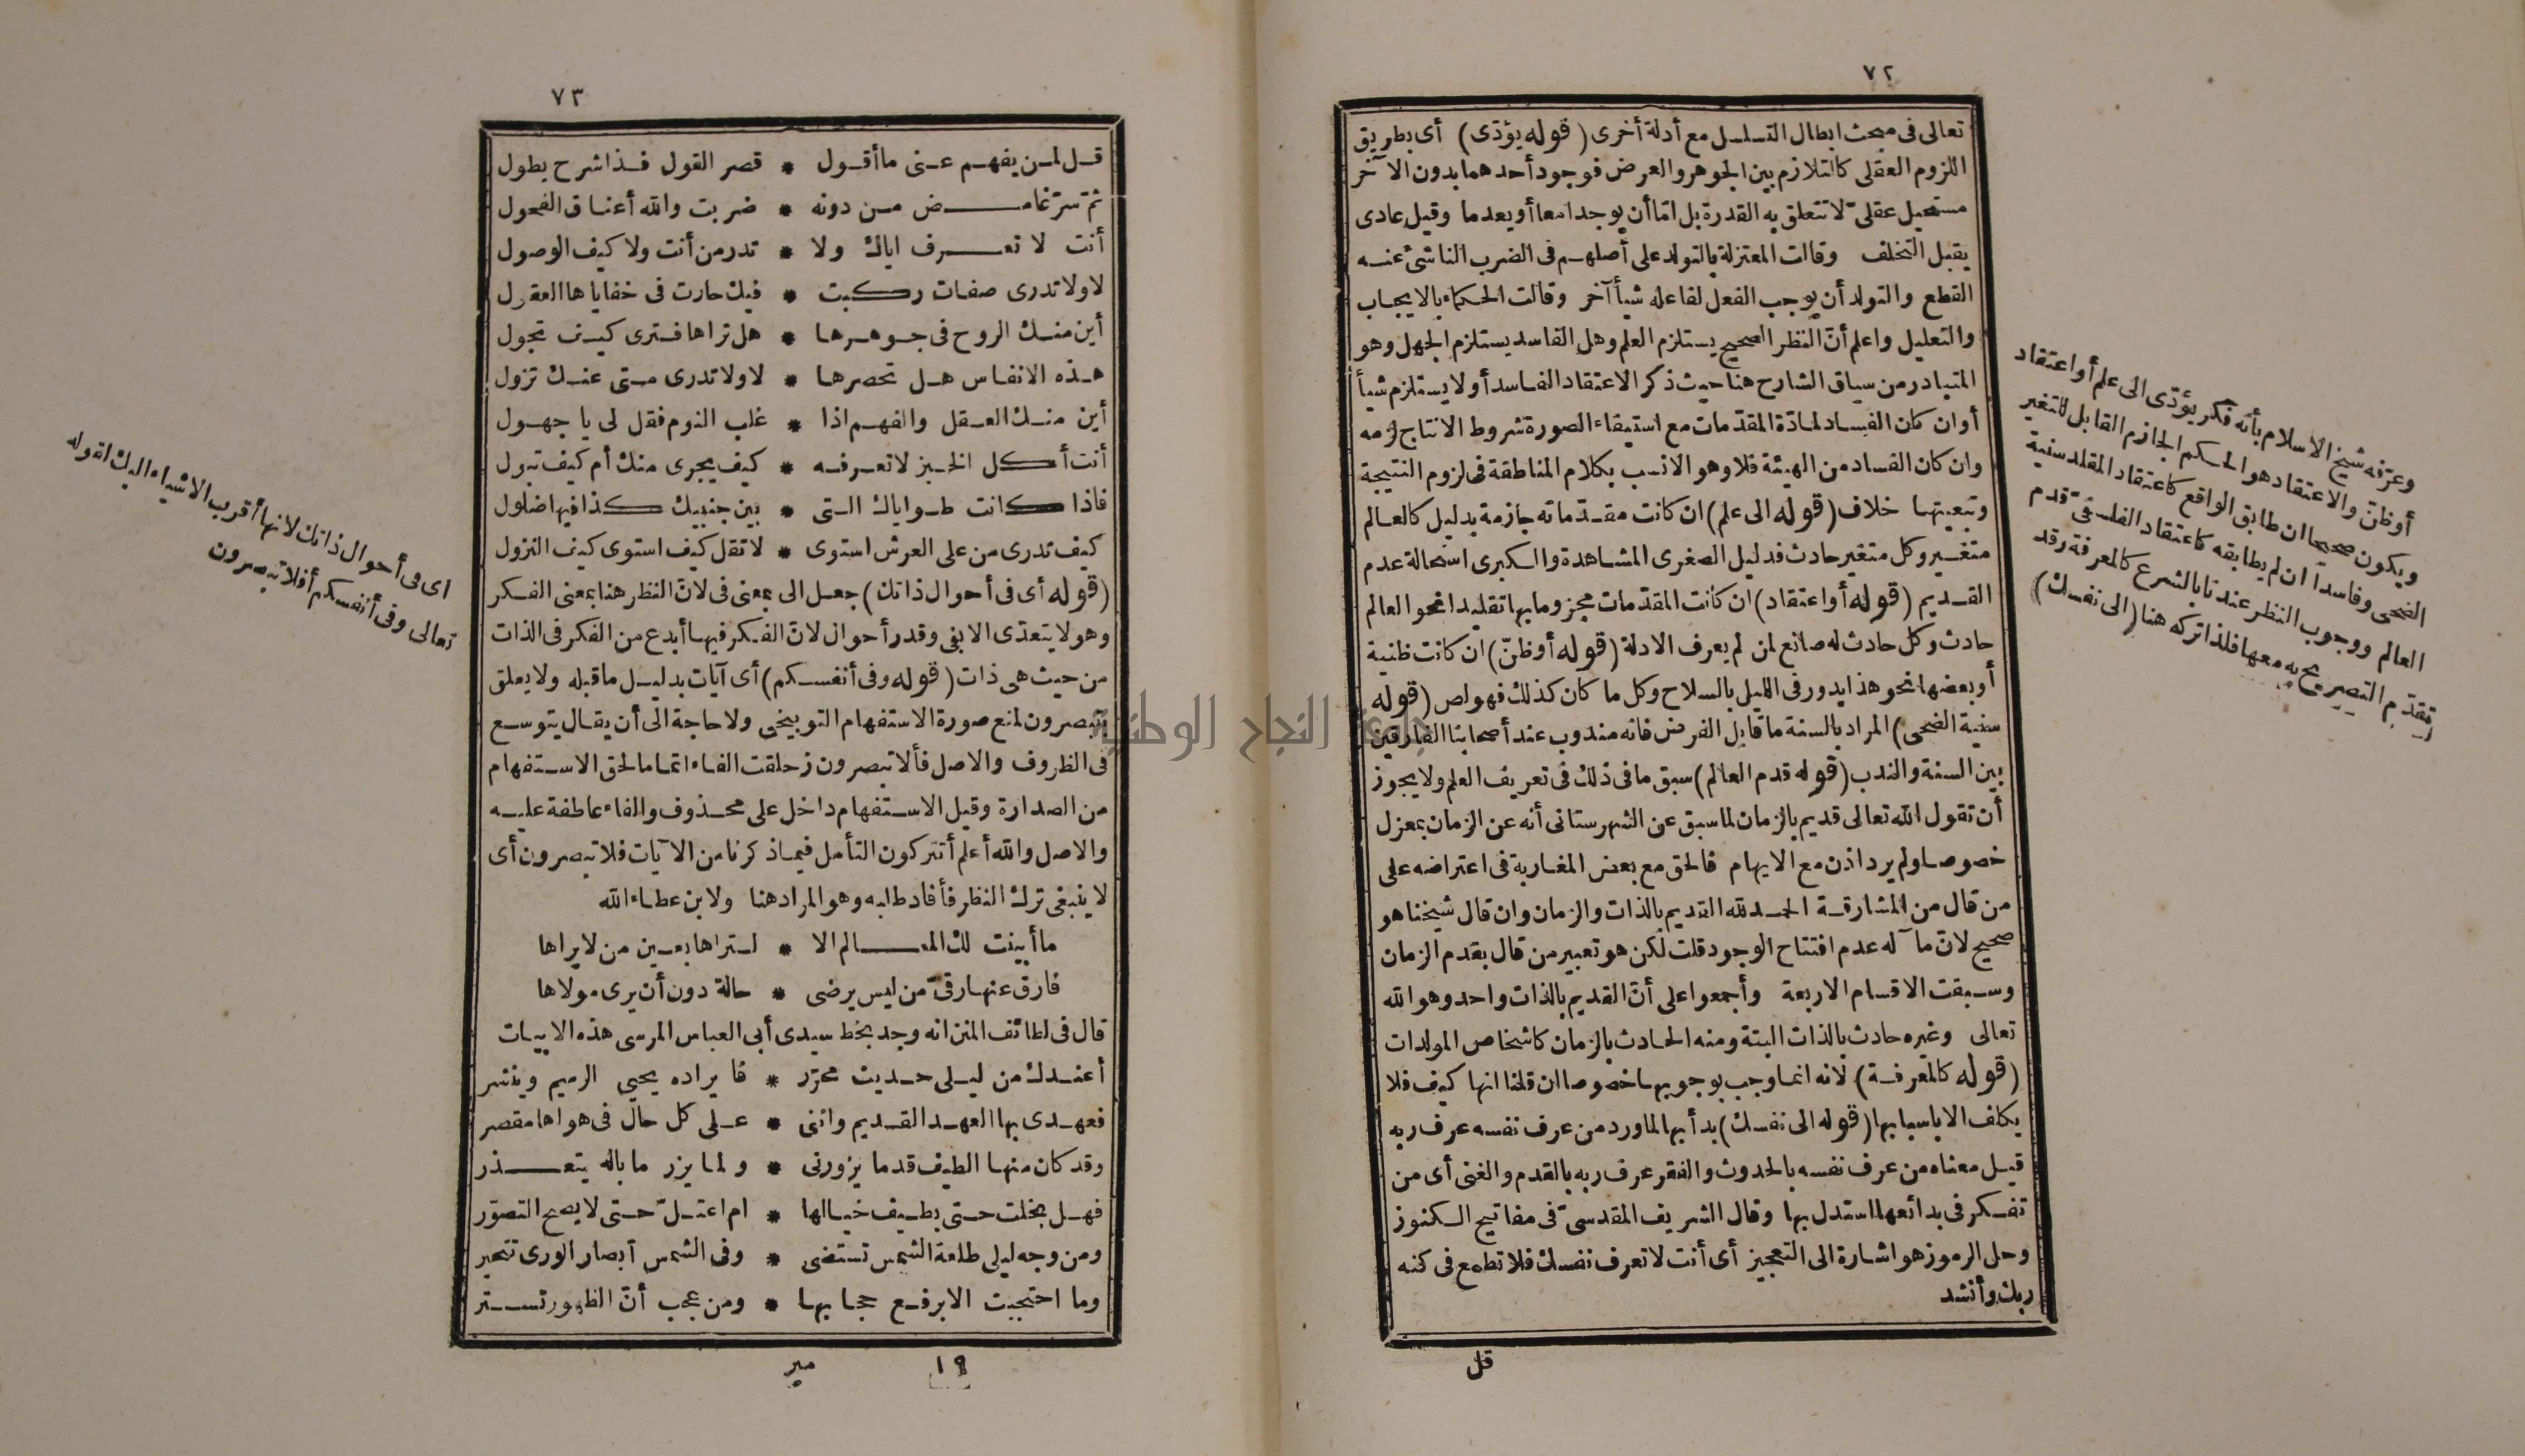 ٧٢
تعالى فى مبحث ابطال التسلسل مع أدلة أخرى (قوله يؤدّى) أى بطريق
اللزوم العقلى كالتلازم بين الجوهر والعرض فوجود أحدهما بدون الآخر
مستحيل عقلىّ لا تتعلق به القدرة بل امّا أن يوجد امعا أو يعدما وقيل عادى
يقبل التخلف وقالت المعتزلة بالتولد على أصلهم فى الضرب الناشئ عنه
القطع والتولد أن يوجب الفعل لفاعله شيأ آخر وقالت الحكماء بالايجاب
والتعليل واعلم أنّ النظر الصحيح يستلزم العلم وهل الفاسد يستلزم الجهل وهو
المتبادر من سياق الشارح هنا حيث ذكر الاعتقاد الفاسد أو لا يستلزم شيأ
أو ان كان الفساد لمادّة المقدّمات مع استيفاء الصورة شروط الانتاج لزمه
وان كان الفساد من الهيئة فلا وهو الانسب بكلام المناطقة فى لزوم النتيجة
وتبعيتها خلاف (قوله الى علم) ان كانت مقدّماته جازمة بدليل كالعالم
متغير وكل متغير حادث فدليل الصغرى المشاهدة والكبرى استحالة عدم
القديم (قوله أو اعتقاد) ان كانت المقدّمات مجزوما بها تقليدا نحو العالم
حادث وكل حادث له صانع لمن لم يعرف الادلة (قوله أوظنّ) ان كانت ظنية
أو بعضها نحو هذا يدور فى الليل بالسلاح وكل ما كان كذلك فهو لص (قوله
سنية الضحى) المراد بالسنة ما قابل الفرض فانه مندوب عند أصحابنا الفارقين
بين السنة والندب (قوله قدم العالم) سبق ما فى ذلك فى تعريف العلم ولا يجوز
أن تقول الله تعالى قديم بالزمان لما سبق عن الشهرستانى أنه عن الزمان بمعزل
خصوصا ولم يرد اذن مع الايهام فالحق مع بعض المغاربة فى اعتراضه على
من قال من المشارقة الحمد لله القديم بالذات والزمان وان قال شيخنا هو
صحيح لانّ مآله عدم افتتاح الوجود قلت لكن هو تعبير من قال بقدم الزمان
وسبقت الاقسام الاربعة وأجمعوا على أنّ القديم بالذات واحد وهو الله
تعالى وغيره حادث بالذات البتة ومنه الحادث بالزمان كاشخاص المولدات
(قوله كالمعرفة) لانه انما وجب بوجوبها خصوصا ان قلنا انها كيف فلا
يكلف الا باسبابها (قوله الى نفسك) بدأ بها لما ورد من عرف نفسه عرف ربه
قيل معناه من عرف نفسه بالحدوث والفقر عرف ربه بالقدم والغنى أى من
تفكر فى بدائعها استدل بها وقال الشريف المقدسىّ فى مفاتيح الكنوز
وحل الرموز هو اشارة الى التعجيز أى أنت لا تعرف نفسك فلا تطمع فى كنه
ربك وأنشد
قل
وعرّفه شيخ الاسلام بأنه فكر يؤدّى الى علم أو اعتقاد
أوظنّ والاعتقاد هو الحكم الجازم القابل للتغير
ويكون صحيحا ان طابق الواقع كاعتقاد المقلد سنية
الضحى وفاسدا ان لم يطابقه كاعتقاد الفلسفىّ قدم
العالم ووجوب النظر عندنا بالشرع كالمعرفة وقد
تقدّم التصريح به معها فلذا تركه هنا (الى نفسك)
٧٣
قل لمن يفهم عنى ما أقول * قصر القول فذا شرح يطول
ثم سرّ غامض من دونه * ضربت والله أعناق الفحول
أنت لا تعرف اياك ولا * تدر من أنت ولا كيف الوصول
لا ولا تدرى صفات ركبت * فيك حارت فى خفاياها العقول
أين منك الروح فى جوهرها * هل تراها فترى كيف تجول
هذه الانفاس هل تحصرها * لا ولا تدرى متى عنك تزول
أين منك العقل والفهم اذا * غلب النوم فقل لى يا جهول
أنت أكل الخبز لا تعرفه * كيف يجرى منك أم كيف تبول
فاذا كانت طواياك التى * بين جنبيك كذا فيها ضلول
كيف تدرى من على العرش استوى * لا تقل كيف استوى كيف النزول
(قوله أى فى أحوال ذاتك) جعل الى بمعنى فى لانّ النظر هنا بمعنى الفكر
وهو لا يتعدّى الا بفى وقدر أحوال لانّ الفكر فيها أبدع من الفكر فى الذات
من حيث هى ذات (قوله وفى أنفسكم) أى آيات بدليل ما قبله ولا يعلق
بتبصرون لمنع صورة الاستفهام التوبيخى ولا حاجة الى أن يقال يتوسع
فى الظروف والاصل فألا تبصرون زحلقت الفاء اتماما لحق الاستفهام
من الصدارة وقيل الاستفهام داخل على محذوف والفاء عاطفة عليه
والاصل والله أعلم أتتركون التأمل فيما ذكرنا من الآيات فلا تبصرون أى
لا ينبغى ترك النظر فأفاد طلبه وهو المراد هنا ولابن عطاء الله
ما أبينت لك المعالم الا * لتراها بعين من لا يراها
فارق عنها رقىّ من ليس يرضى * حالة دون أن يرى مولاها
قال فى لطائف المنن انه وجد بخط سيدى أبى العباس المرسى هذه الابيات
أعندك من ليلى حديث محرّر * فايراده يحيى الرميم وينشر
فعهدى بها العهد القديم واننى * على كل حال فى هواها مقصر
وقد كان منها الطيف قدما يزورنى * ولما يزر ما باله يتعذر
فهل بخلت حتى بطيف خيالها * ام اعتلّ حتى لا يصح التصوّر
ومن وجه ليلى طلعة الشمس تستضى * وفى الشمس أبصار الورى تتحير
وما احتجبت الا برفع حجابها * ومن عجب أنّ الظهور تستر
١٩ مير
اى فى أحوال ذاتك لانها أقرب الاشياء اليك لقوله
تعالى وفى أنفسكم أفلا تبصرون
جامعة النجاح الوطنية